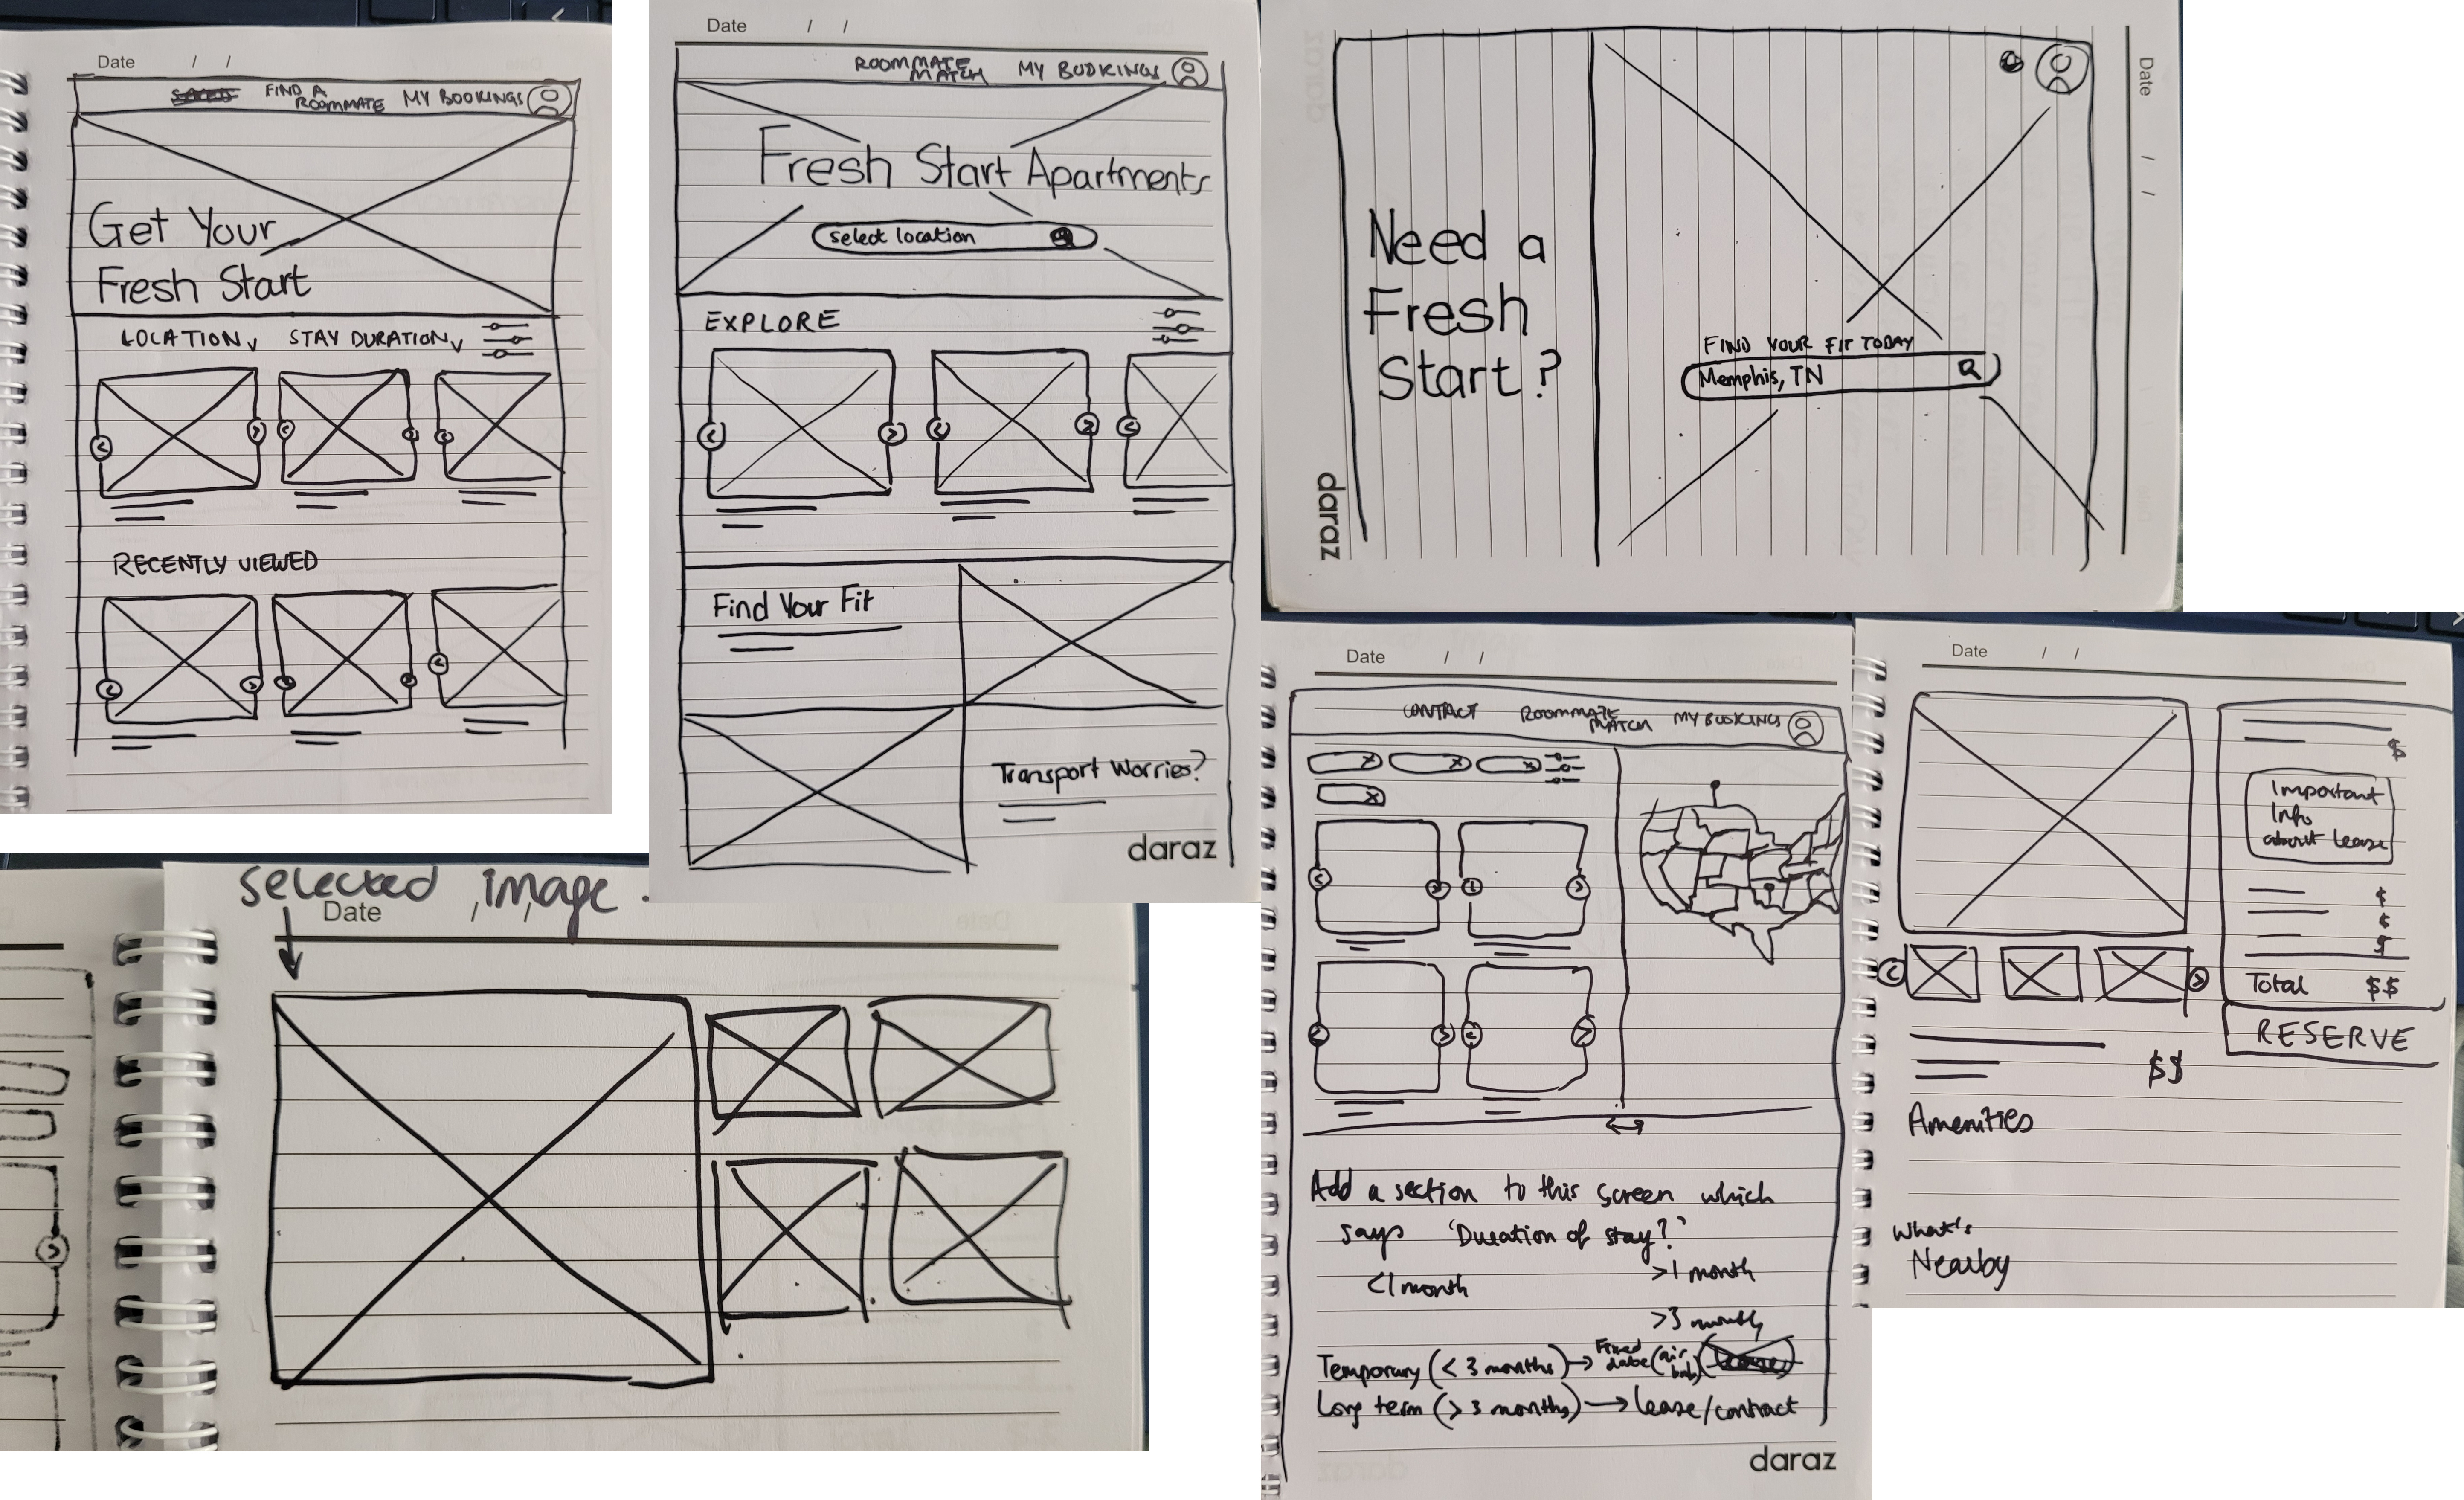 Date / /
FIND A
ROOMMATE
MY BOOKINGS
Get Your
Fresh Start
LOCATION
STAY DURATION
RECENTLY VIEWED
Date / /
ROOMMATE
MATCH
MY BOOKINGS
Fresh Start Apartments
select location
EXPLORE
Find Your Fit
Transport Worries?
daraz
Date / /
Need a
Fresh
Start?
FIND YOUR FIT TODAY
Memphis, TN
daraz
selected image
Date / /
Date / /
CONTACT
ROOMMATE
MATCH
MY BOOKINGS
Add a section to this screen which
says 'Duration of stay?'
<1 month
>1 month
>3 month
Temporary (< 3 months) → Fixed
date (air
bnb)
Long term (> 3 months) → lease/contract
daraz
Date / /
$
Important
Info
about lease
$
$
$
Total $$
RESERVE
$$
Amenities
What's
Nearby